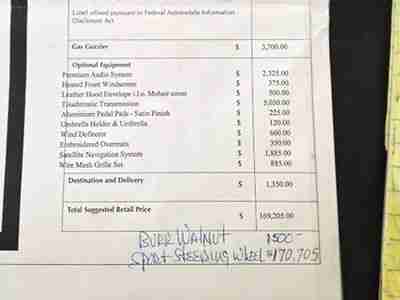 Label affixed pursuant to Federal Automobile Information
Disclosure Act
Gas Guzzler $ 3,700.00
Optional Equipment
Premium Audio System $ 2,325.00
Heated Front Windscreen $ 375.00
Leather Hood Envelope i.l.o. Mohair $ 500.00
Touchtronic Transmission $ 5,000.00
Aluminium Pedal Pads - Satin Finish $ 225.00
Umbrella Holder & Umbrella $ 120.00
Wind Deflector $ 600.00
Embroidered Overmats $ 350.00
Satellite Navigation System $ 1,885.00
Wire Mesh Grille Set $ 885.00
Destination and Delivery $ 1,350.00
Total Suggested Retail Price $ 169,205.00
BURR WALNUT 1500-
SPORT STEERING WHEEL $170,705